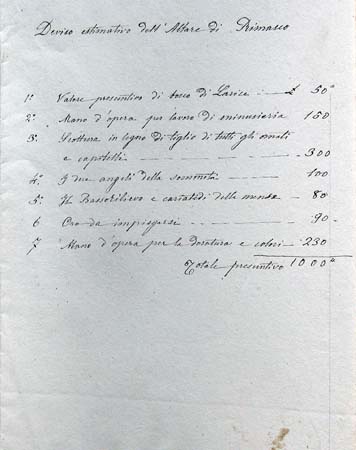 Deviso estimativo dell'Altare di Rimasco
1° Valore presuntivo di bosco di Larice £ 50"
2° Mano d'opera per lavoro di minuseria 150
3° Scoltura in legno di tiglio di tutti gli ornati
e capitelli 300
4° I due angeli della sommità 100
5° Il Bassorilievo e cariatidi della mensa 80
6 Oro da impiegarsi 90
7 Mano d'opera per la doratura e colori 230
Totale presuntivo 1000"